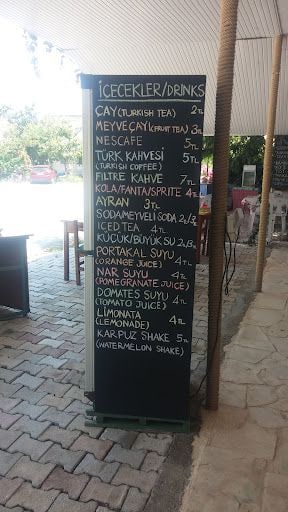 İÇECEKLER/DRINKS
ÇAY(TURKISH TEA) 2TL
MEYVE ÇAYI(FRUIT TEA) 3TL
NESCAFE 5TL
TÜRK KAHVESİ 5TL
(TURKISH COFFEE)
FİLTRE KAHVE 7TL
KOLA/FANTA/SPRITE 4TL
AYRAN 3TL
SODA MEYVELİ SODA 2/3TL
ICED TEA 4TL
KÜÇÜK/BÜYÜK SU 2/3TL
PORTAKAL SUYU 4TL
(ORANGE JUICE)
NAR SUYU 4TL
(POMEGRANATE JUICE)
DOMATES SUYU 4TL
(TOMATO JUICE)
LİMONATA 4TL
(LEMONADE)
KARPUZ SHAKE 5TL
(WATERMELON SHAKE)